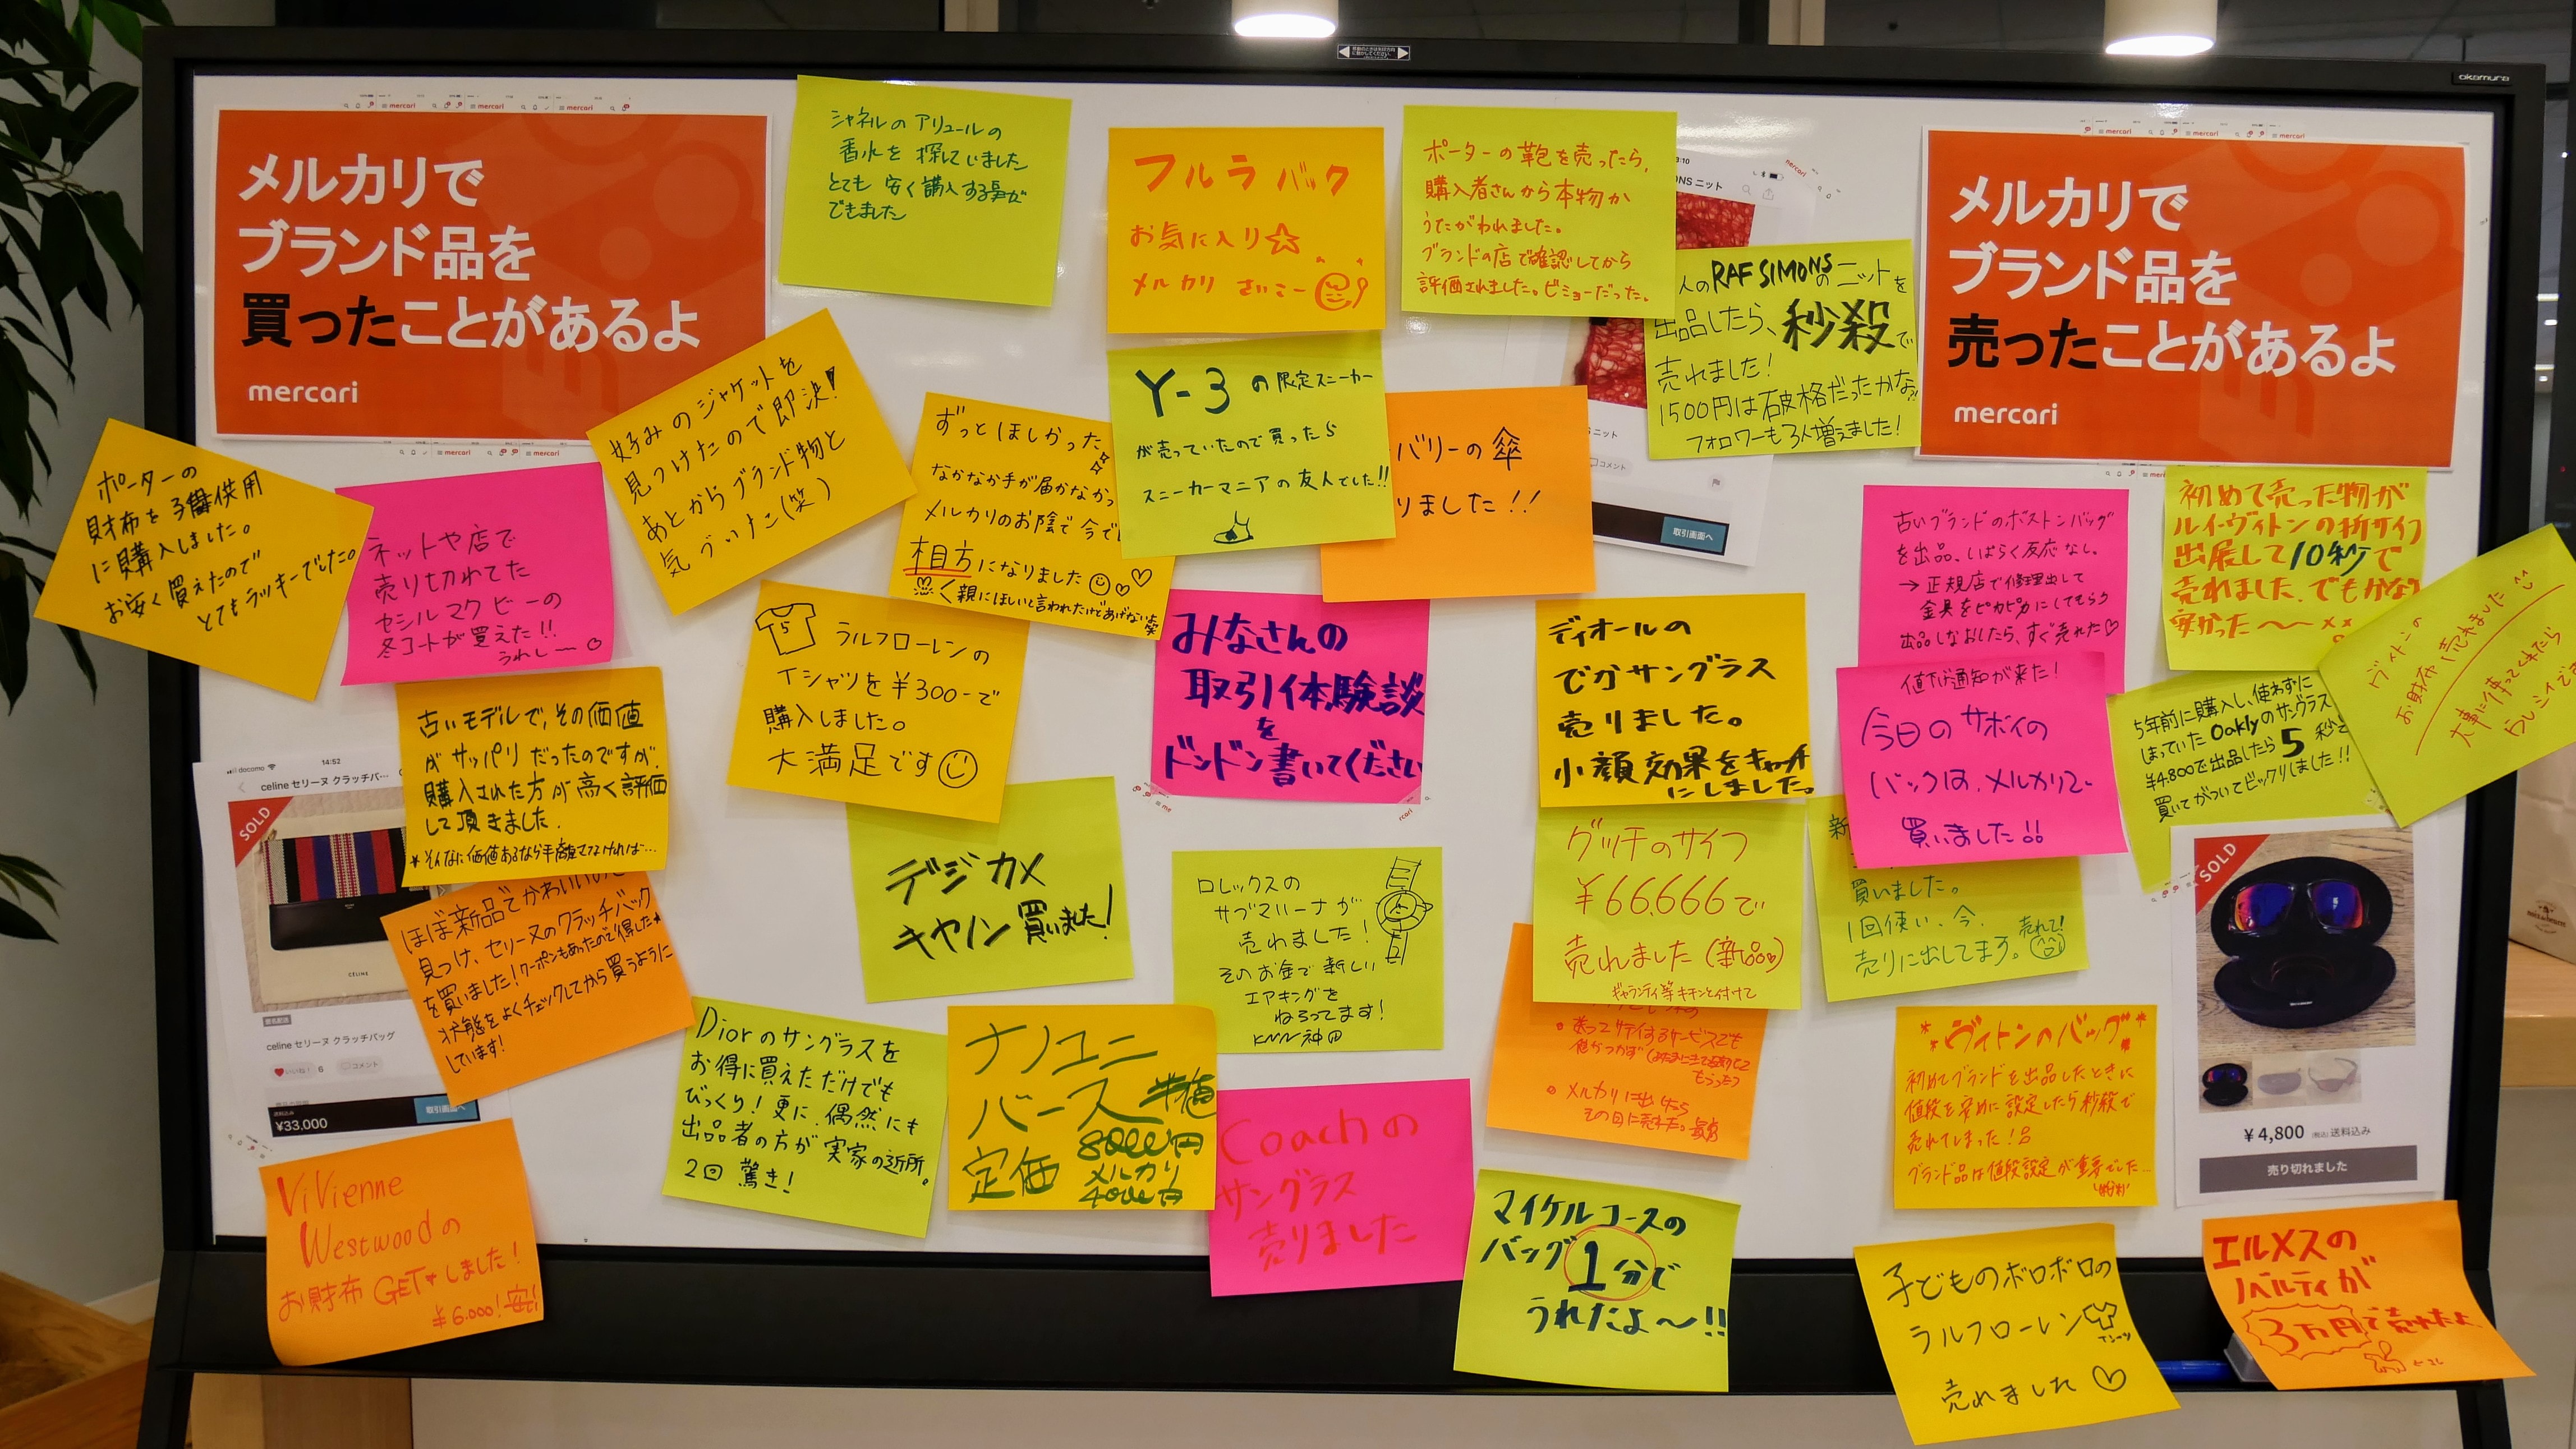 okamura
メルカリで
ブランド品を
買ったことがあるよ
mercari
シャネルのアリュールの
香水を探していました
とても安く購入する事が
できました
フルラ バック
お気に入り☆
メルカリ さいこー
ポーターの鞄を売ったら、
購入者さんから本物か
うたがわれました。
ブランドの店で確認してから
評価されました。ビミョーだった。
人のRAF SIMONSのニットを
出品したら、秒殺で
売れました!
1500円は破格だったかな?!
フォロワーも3人増えました!
メルカリで
ブランド品を
売ったことがあるよ
mercari
ポーターの
財布を子供用
に購入しました。
お安く買えたので
とてもラッキーでした。
ネットや店で
売り切れてた
セシルマクビーの
冬コートが買えた!!
うれしー♡
好みのジャケットを
見つけたので即決!
あとからブランド物と
気づいた(笑)
ずっとほしかった
なかなか手が届かなかっ
メルカリのお陰で今で
相方になりました
親にほしいと言われたけどあげない笑
Y-3の限定スニーカー
が売っていたので買ったら
スニーカーマニアの友人でした!!
バリーの傘
りました!!
ニット
コメント
取引画面へ
古いブランドのボストンバッグ
を出品、しばらく反応なし。
→正規店で修理出して
金具をピカピカにしてもらう
出品しなおしたら、すぐ売れた♡
初めて売った物が
ルイ・ヴィトンの折サイフ
出展して10秒で
売れました。でもかなり
安かった〜〜
ヴィトンの
お財布売れました
大事に使ってくれたら
古いモデルで、その価値
がサッパリだったのですが、
購入された方が高く評価
して頂きました.
*そんなに価値あるなら手離さなければ…
ラルフローレンの
Tシャツを¥300-で
購入しました。
大満足です
みなさんの
取引体験談
を
ドンドン書いてください
ディオールの
でかサングラス
売りました。
小顔効果をキャッチ
にしました。
値下げ通知が来た!
今日のサボイの
バックは、メルカリで
買いました!!
5年前に購入し、使わずに
しまっていたOaklyのサングラス
¥4,800で出品したら5秒で
買いてがついてビックリしました!!
docomo
14:52
celine セリーヌ クラッチバ…
SOLD
CELINE
celine セリーヌ クラッチバッグ
いいね! 6
コメント
送料込み
¥33,000
取引画面へ
ほぼ新品でかわいいのを
見つけ、セリーヌのクラッチバック
を買いました!クーポンもあったので得した
状態をよくチェックしてから買うように
しています!
デジカメ
キヤノン買いました!
ロレックスの
サブマリーナが
売れました!
そのお金で新しい
エアキングを
ねらってます!
KNN神田
グッチのサイフ
¥66,666で
売れました(新品)
ギャランティ等キチンと付けて
新
買いました。
1回使い、今、
売りに出してます。売れて!
SOLD
¥4,800 (税込) 送料込み
売り切れました
Diorのサングラスを
お得に買えただけでも
びっくり!更に、偶然にも
出品者の方が実家の近所。
2回驚き!
ナノユニ
バース 半値
定価 8000円
メルカリ
4000円
Coachの
サングラス
売りました
メルカリに出したら
その日に売れた。最高
マイケルコースの
バッグ1分で
うれたよ〜!!
*ヴィトンのバッグ*
初めてブランドを出品したときに
値段を安めに設定したら秒殺で
売れてしまった!
ブランド品は値段設定が重要でした…
ViVienne
Westwoodの
お財布GETしました!
¥6.000!安い
子どものボロボロの
ラルフローレン
Tシャツ
売れました♡
エルメスの
ノベルティが
3万円で売れたよ